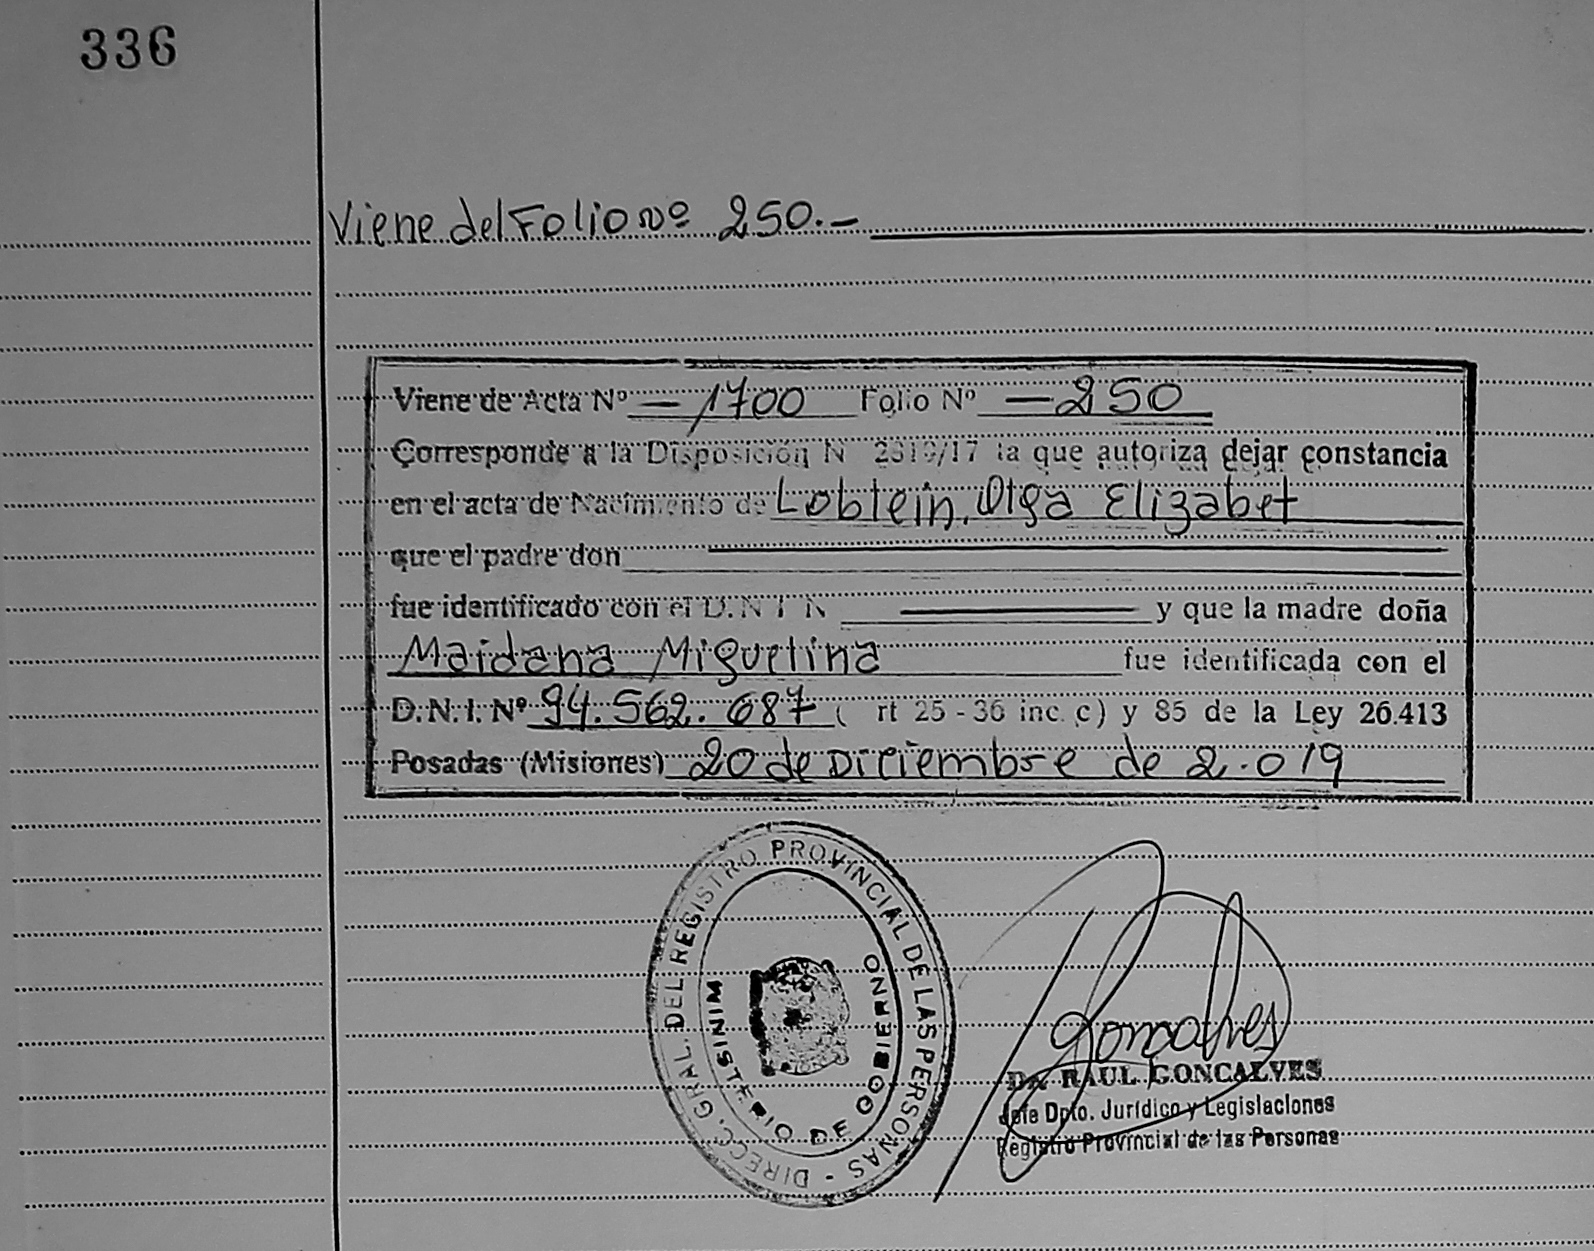 336
Viene del Folio Nº 250.-
Viene de Acta Nº - 1700 Folio Nº - 250
Corresponde a la Disposición N 2319/17 la que autoriza dejar constancia
en el acta de Nacimiento de Loblein, Olga Elizabet
que el padre don
fue identificado con el D.N.I N y que la madre doña
Maidana Miguelina fue identificada con el
D.N.I. Nº 94.562.687 ( rt 25 - 36 inc. c) y 85 de la Ley 26.413
Posadas (Misiones) 20 de Diciembre de 2.019
DIRECC. GRAL. DEL REGISTRO PROVINCIAL DE LAS PERSONAS -
MINISTERIO DE GOBIERNO
Goncalves
Dr. RAUL GONCALVES
Jefe Dpto. Jurídico y Legislaciones
Registro Provincial de las Personas